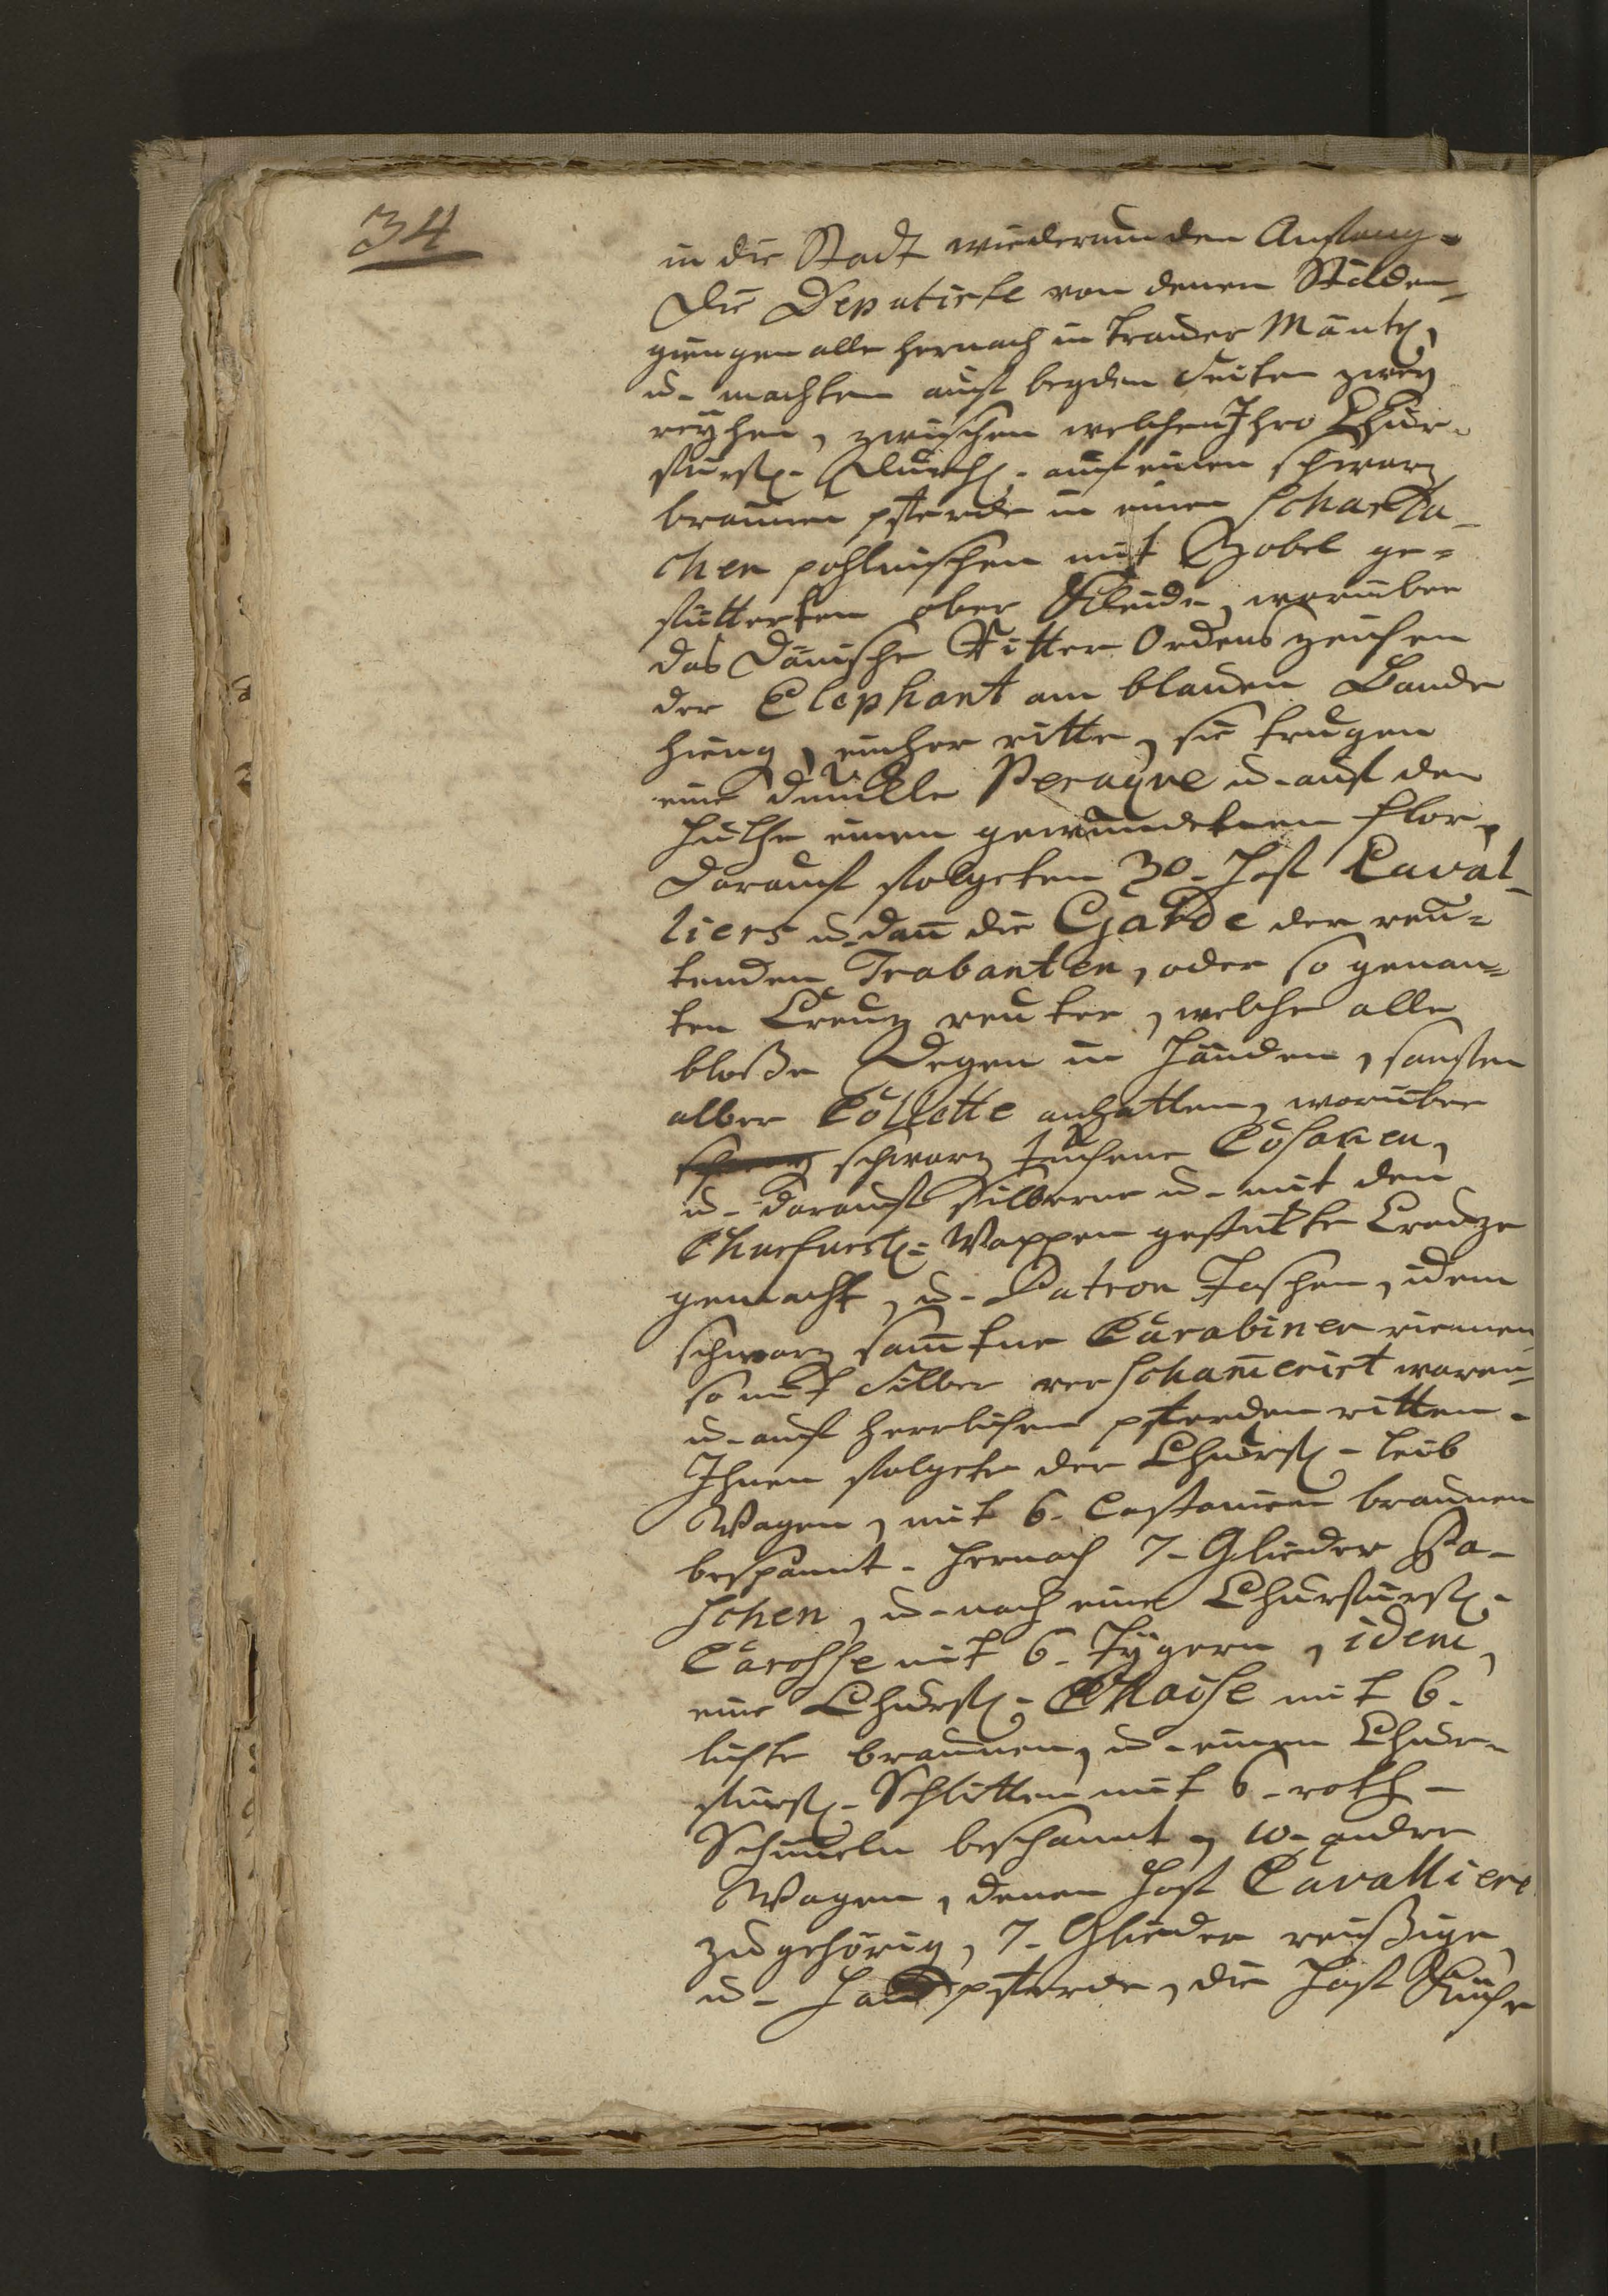 34
in die Stadt wiederum den Anfang.
Die Deputirte von denen Städen
giengen alle hernach in trauer Mäntel,
u. machten auf beyden Seiten zwey
reyhen, zwischen welchen Ihro Chur-
fürstl. Durchl. auf einen schwarz
braunen pferde in einen Scharla-
chen pohlnischen mit Zobel ge-
fütterten ober Kleide, worüber
das Dänische Ritter Ordens zeichen
der Elephant am blauen Bande
hieng, einher ritte, sie trugen
eine dunckle Peruqve u. auf den
Huthe einen gewundenen flor,
darauf folgeten 30. Hof Caval-
liers u. dañ die Garde der reu-
tenden Trabanten, oder so genan-
ten Creuz reuter, welche alle
bloße Degen in Händen, sonsten
alber Collette anhatten, worüber
schwarz schwarz tuchene Cosaken,
u. darauf silberne u. mit den
Churfürstl. Wappen gestickte Creuze
gemacht, u. Patron Taschen, idem
schwarz sam̃tne Carabiner riemen
so mit Silber verschameriert waren,
u. auf herrlichen pferden ritten.
Ihnen folgete der Churfl. leib
Wagen, mit 6. Castanien braunen
bespannt. hernach 7. Glieder Pa-
schen, u. noch eine Churfürstl.
Carosse mit 6. Tygern, idem,
eine Churfl. Chaise mit 6.
lichte braunen, u. einen Chur-
fürstl. Schlitten mit 6. roth-
Schimeln beschannt, 10. andre
Wagen, denen Hof Cavalliere
zugehörig, 7. Glieder reußige
u. Handpferde, die Hof Küche